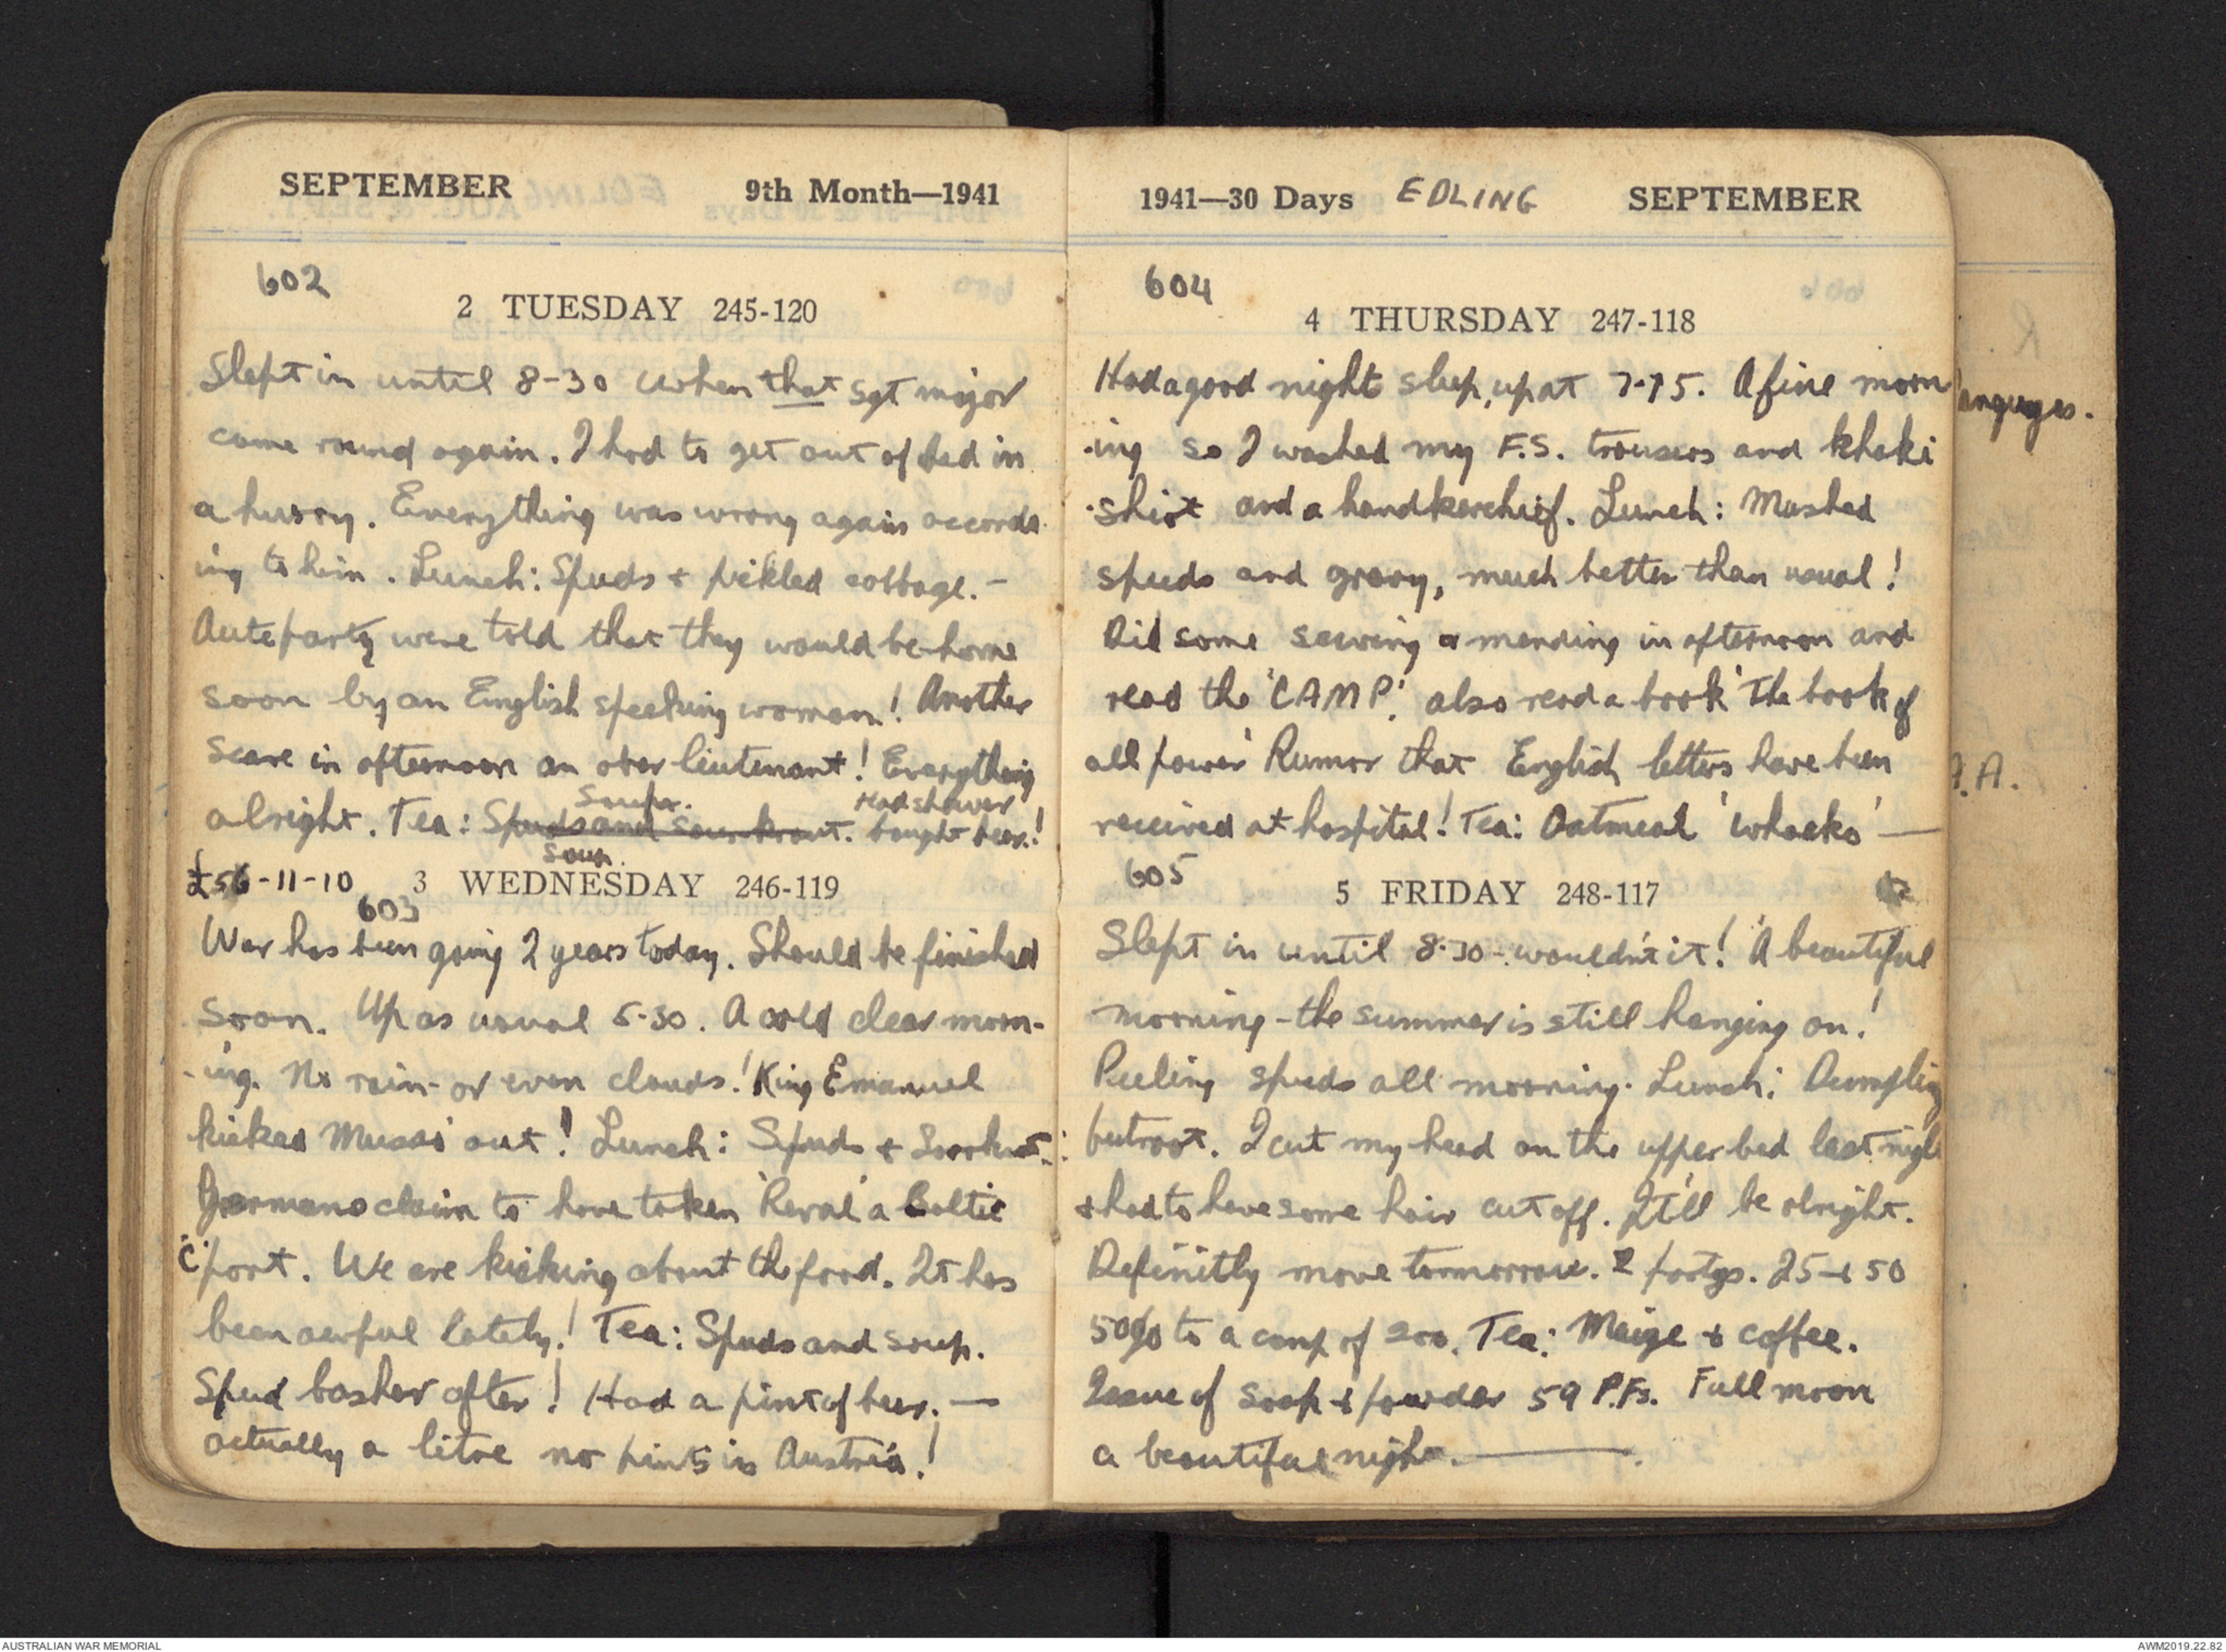 SEPTEMBER 9th Month—1941
602
2 TUESDAY 245-120
Slept in until 8-30 when that sgt major
came round again. I had to get out of bed in
a hurry. Everything was wrong again accord-
ing to him. Lunch: Spuds + pickled cabbage. -
Auto party were told that they would be home
soon by an English speaking woman! Another
scare in afternoon an ober lieutenant! Everything
Soup. Had shower
alright. Tea: Spuds and sourkraut. bought beer!
Soup.
£56-11-10 3 WEDNESDAY 246-119
603
War has been going 2 years today. Should be finished
soon. Up as usual 5-30. A cold clear morn-
-ing. No rain - or even clouds! King Emanuel
kicked 'Musso' out! Lunch: Spuds +
Germans claim to have taken 'Reval' a Baltic
"C" port. We are kicking about the food. It has
been awful lately! Tea: Spuds and soup.
Spud basher after! Had a pint of beer. —
actually a litre no pints in Austria!
1941—30 Days EDLING SEPTEMBER
604
4 THURSDAY 247-118
Had a good night sleep, up at 7-15. A fine morn
-ing so I washed my F.S. trousers and khaki
shirt and a handkerchief. Lunch: Mashed
spuds and gravy, much better than usual!
Did some sewing & mending in afternoon and
read the 'CAMP'. also read a book 'The book of
all power' Rumor that English letters have been
received at hospital! Tea: Oatmeal 'whacko' —
605
5 FRIDAY 248-117
Slept in until 8-30 - wouldn't it! A beautiful
morning - the summer is still hanging on!
Peeling spuds all morning. Lunch: Dumpling
butroot. I cut my head on the upper bed last nigh
+ had to have some hair cut off. It'll be alright.
Definitly move tommorrow. 2 partys. 25 + 50
50% to a camp of 200. Tea: Maize + coffee.
Issue of soap + powder 59 P.Fs. Full moon
a beautiful night. —
anguages.
.A.
AUSTRALIAN WAR MEMORIAL
AWM2019.22.82